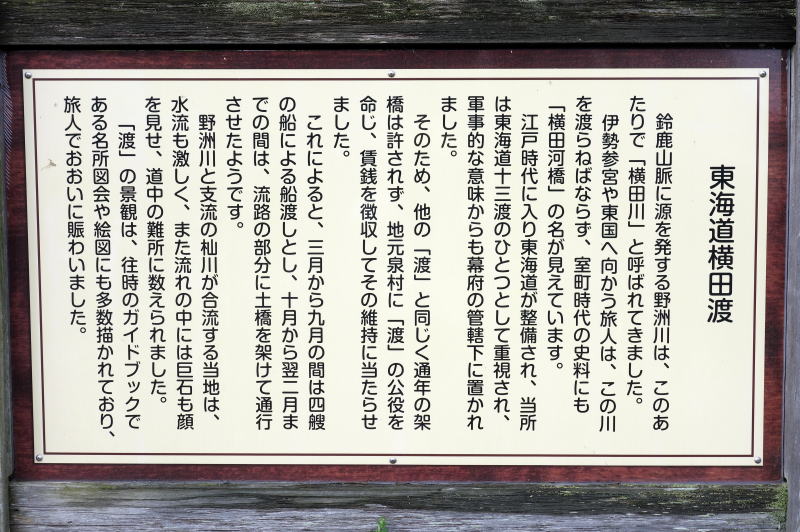 東海道横田渡
鈴鹿山脈に源を発する野洲川は、このあ
たりで「横田川」と呼ばれてきました。
伊勢参宮や東国へ向かう旅人は、この川
を渡らねばならず、室町時代の史料にも
「横田河橋」の名が見えています。
江戸時代に入り東海道が整備され、当所
は東海道十三渡のひとつとして重視され、
軍事的な意味からも幕府の管轄下に置かれ
ました。
そのため、他の「渡」と同じく通年の架
橋は許されず、地元泉村に「渡」の公役を
命じ、賃銭を徴収してその維持に当たらせ
ました。
これによると、三月から九月の間は四艘
の船による船渡しとし、十月から翌二月ま
での間は、流路の部分に土橋を架けて通行
させたようです。
野洲川と支流の杣川が合流する当地は、
水流も激しく、また流れの中には巨石も顔
を見せ、道中の難所に数えられました。
「渡」の景観は、往時のガイドブックで
ある名所図会や絵図にも多数描かれており、
旅人でおおいに賑わいました。